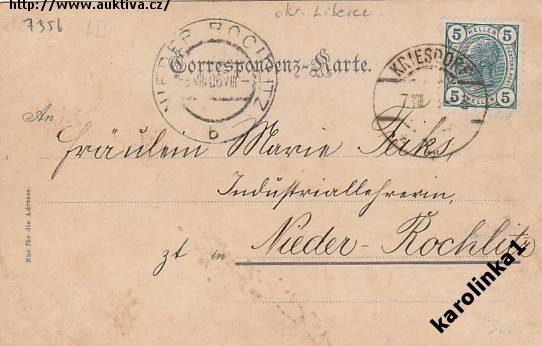 http://www.auktiva.cz/
7356
okr. Liberec
NIEDER ROCHLITZ
VIII 06 VIII
b
Correspondenz-Karte.
KRIESDORF
7 VIII
5 HELLER 5
5 HELLER 5
An
Fräulein Marie
Industriallehrerin,
zt in Nieder-Rochlitz
Nur für die Adresse.
karolinka1